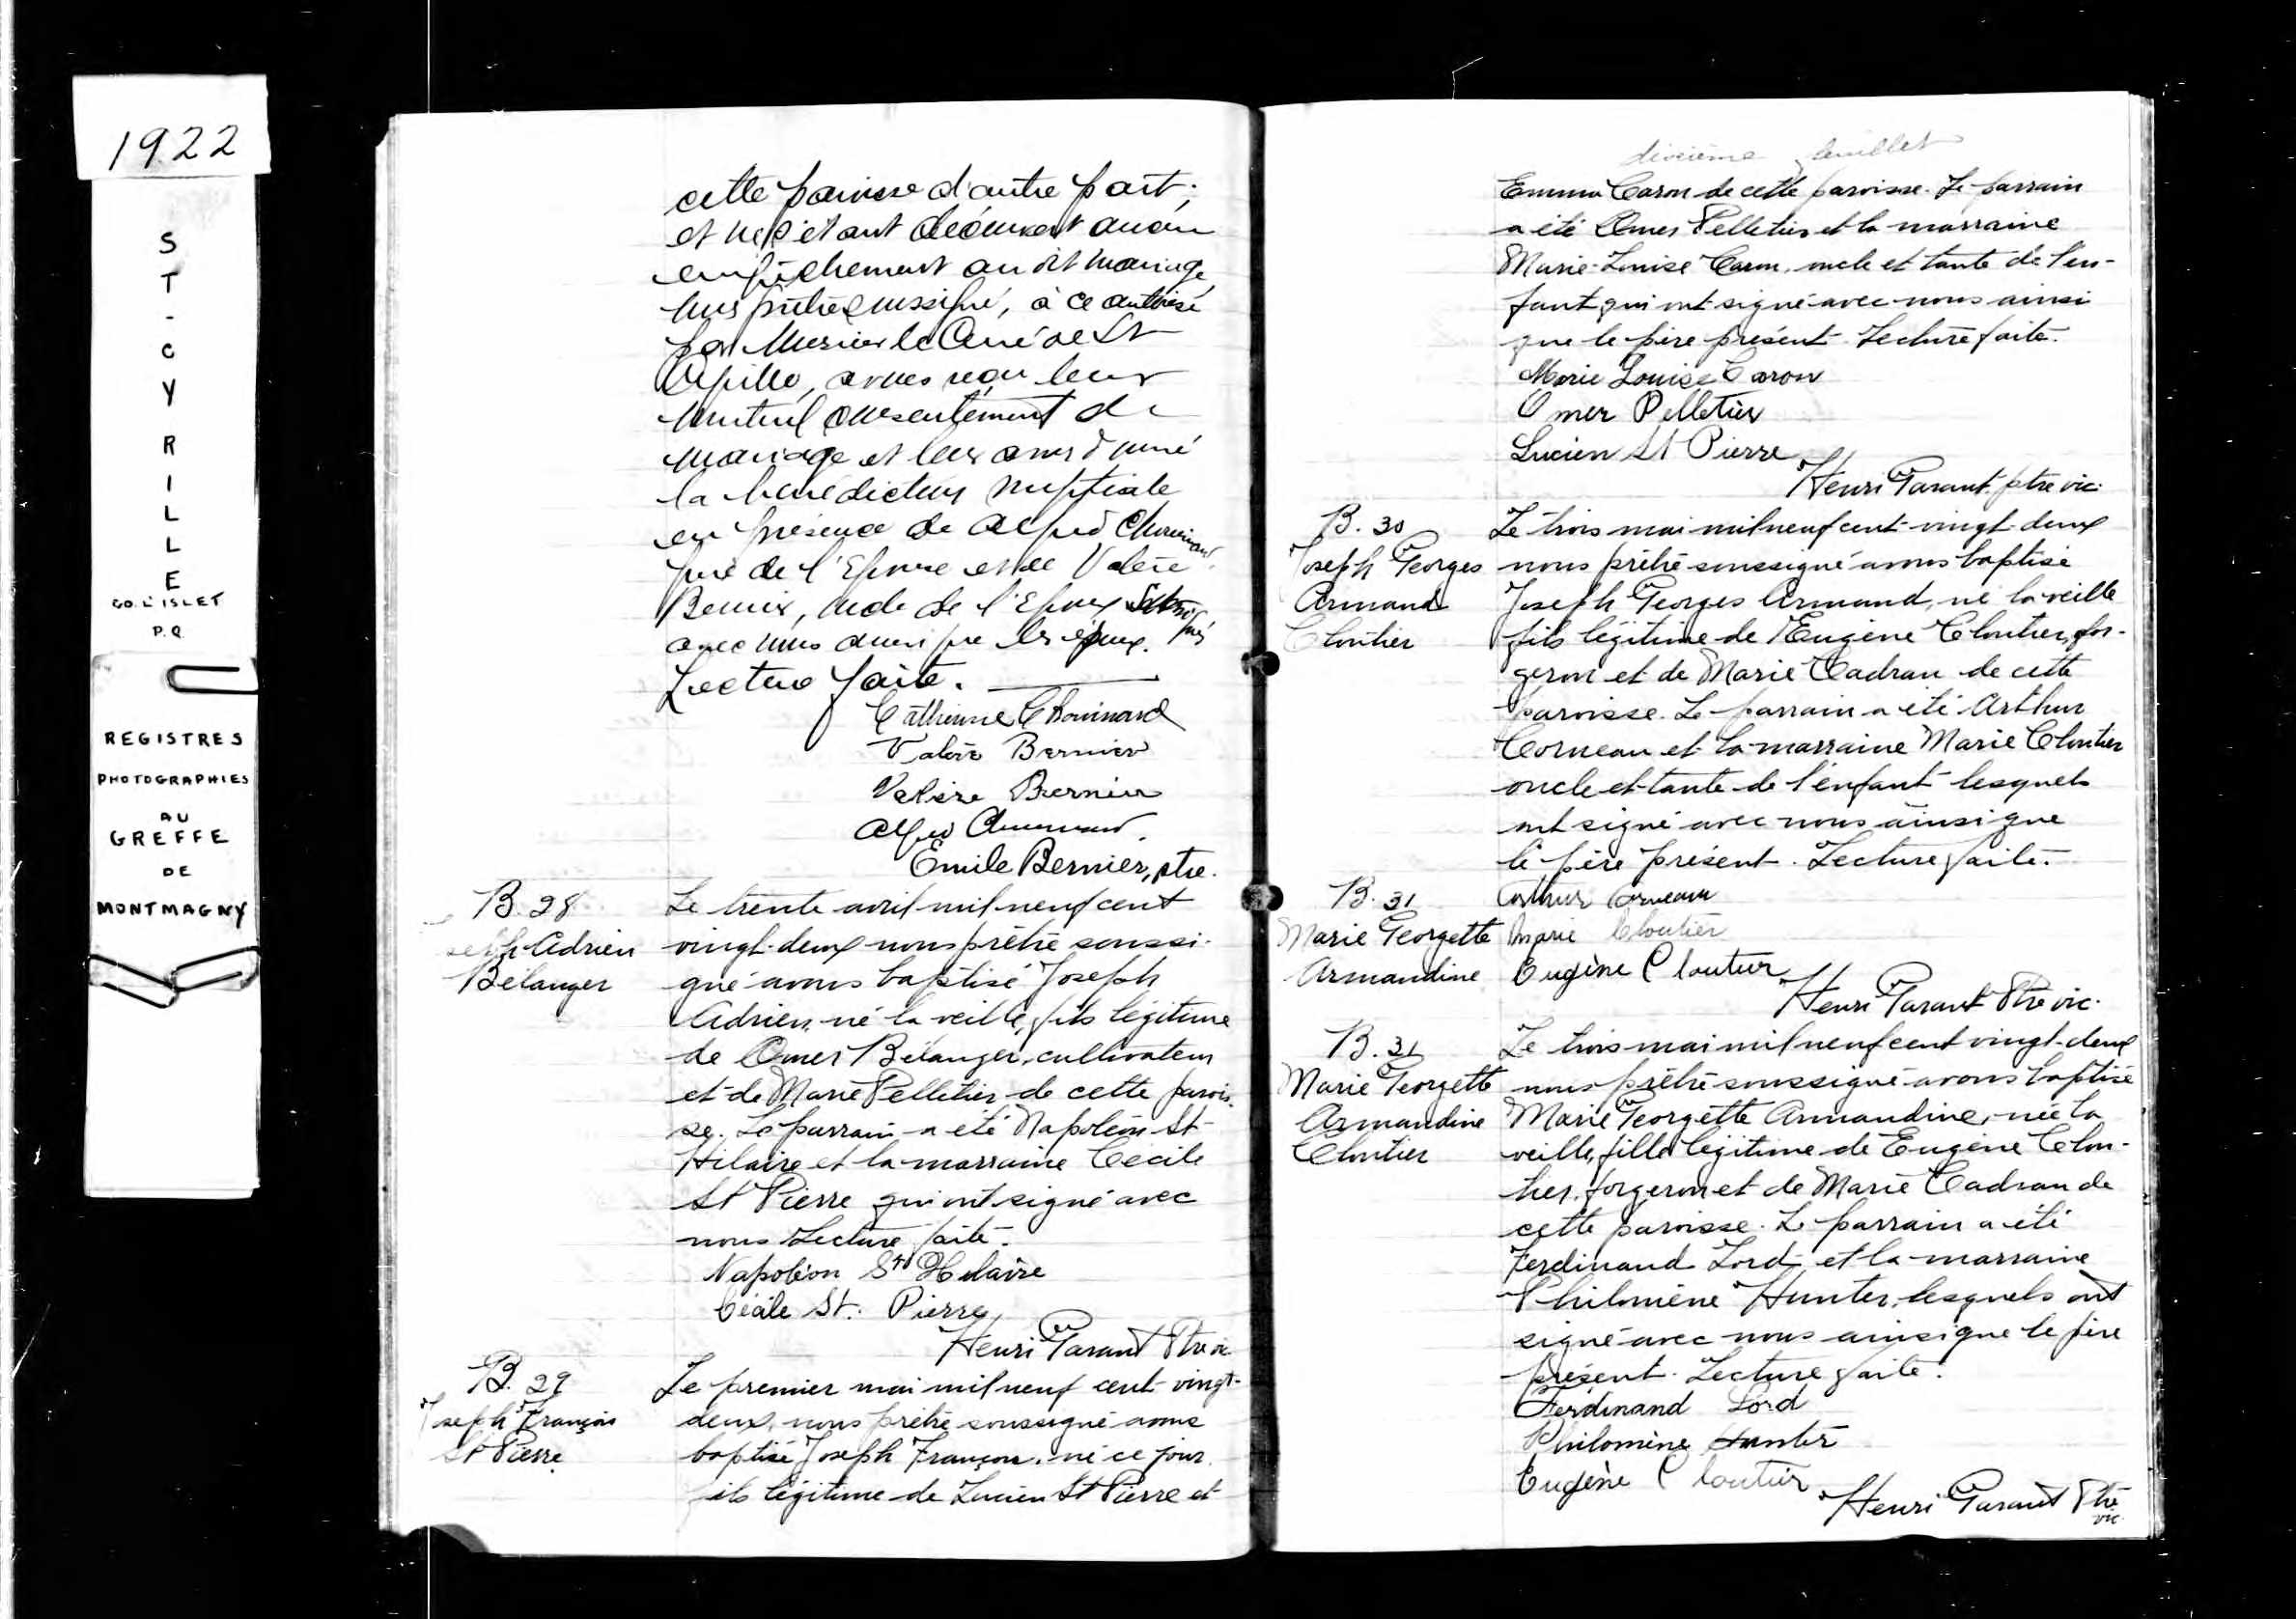 1922
S
T
-
C
Y
R
I
L
L
E
CO. L'ISLET
P.Q.
REGISTRES
PHOTOGRAPHIES
AU
GREFFE
DE
MONTMAGNY
cette paroisse d'autre part;
et ne s'étant découvert aucun
empêchement au dit mariage,
nous prêtre soussigné, à ce autorisé
par Monsieur le Curé de St
Cyrille, avons reçu leur
mutuel consentement de
mariage et leur avons donné
la bénédiction nuptiale
en présence de Alfred Chouinard
père de l'Epouse et de Valère
Bernier, de l'Epoux
avec nous ainsi que les époux.
Lecture faite.
Catherine Chouinard
Valère Bernier
Valère Bernier
Alfred Chouinard.
Emile Bernier, ptre.
B. 28
seph Adrien
Bélanger
Le trente avril mil neuf cent
vingt-deux nous prêtre soussi-
gné avons baptisé Joseph
Adrien, né la veille, fils légitime
de Omer Bélanger, cultivateur
et de Marie Pelletier de cette parois-
se. Le parrain a été Napoléon St-
Hilaire et la marraine Cécile
St Pierre qui ont signé avec
nous Lecture faite.
Napoléon St Hilaire
Cécile St. Pierre
Henri Garant Ptre vic
B. 29
Joseph François
St Pierre
Le premier mai mil neuf cent vingt-
deux, nous prêtre soussigné avons
baptisé Joseph François, né ce jour,
fils légitime de Lucien St Pierre et
dixième feuillet
Emma Caron de cette paroisse. Le parrain
a été Omer Pelletier et la marraine
Marie-Louise Caron, oncle et tante de l'en-
fant, qui ont signé avec nous ainsi
que le père présent. Lecture faite.
Marie Louise Caron
Omer Pelletier
Lucien St Pierre
Henri Garant, ptre vic.
B. 30
Joseph Georges
Armand
Cloutier
Le trois mai mil neuf cent vingt-deux
nous prêtre soussigné avons baptisé
Joseph Georges Armand, né la veille
fils légitime de Eugène Cloutier, for-
geron et de Marie Cadran de cette
paroisse. Le parrain a été Arthur
Corneau et la marraine Marie Cloutier
oncle et tante de l'enfant lesquels
ont signé avec nous ainsi que
le père présent. Lecture faite.
B. 31
Marie Georgette
Armandine
Arthur Corneau
Marie Cloutier
Eugène Cloutier
Henri Garant Ptre vic.
B. 31
Marie Georgette
Armandine
Cloutier
Le trois mai mil neuf cent vingt-deux
nous prêtre soussigné avons baptisé
Marie Georgette Armandine, née la
veille, fille légitime de Eugène Clou-
tier, forgeron et de Marie Cadran de
cette paroisse. Le parrain a été
Ferdinand Lord et la marraine
Philomène Hunter, lesquels ont
signé avec nous ainsi que le père
présent. Lecture faite.
Ferdinand Lord
Philomène Hunter
Eugène Cloutier
Henri Garant Ptre
vic.